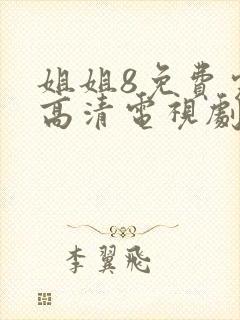 姐姐8免費
高清電視劇
李翼飛